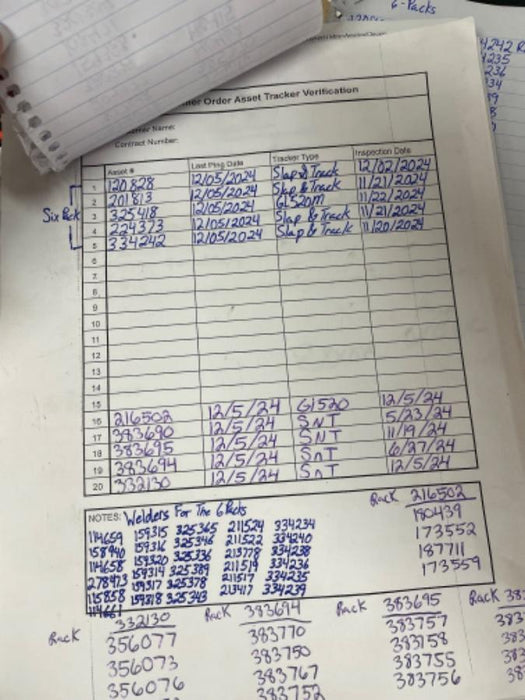 6-Packs
4242
4235
236
Order Asset Tracker Verification
Name:
Contract Number:
Asset # Last Ping Date Tracker Type Inspection Date
1 120828 12/05/2024 Slap & Track 12/02/2024
2 201813 12/05/2024 Slap & Track 11/21/2024
Six Pack 3 325418 12/05/2024 GL520m 11/22/2024
4 224373 12/05/2024 Slap & Track 11/21/2024
5 334242 12/05/2024 Slap & Track 11/20/2024
6
7
8
9
10
11
12
13
14
15
16 216502 12/5/24 Gl520 12/5/24
17 383690 12/5/24 SNT 5/23/24
18 383695 12/5/24 SNT 11/19/24
19 383694 12/5/24 SnT 6/27/24
20 332130 12/5/24 SnT 12/5/24
NOTES: Welders For The 6 Packs
114659 159315 325365 211524 334234
158940 159316 325346 211522 334240
114658 159320 325336 213778 334238
278973 159314 325389 211519 334236
115858 159317 325378 211517 334235
114661 159318 325343 213417 334239
Rack 216502
180439
173552
187711
173559
Rack 332130
356077
356073
356076
Rack 383694
383770
383750
383767
383752
Rack 383695
383757
383758
383755
383756
Rack 383
383
383